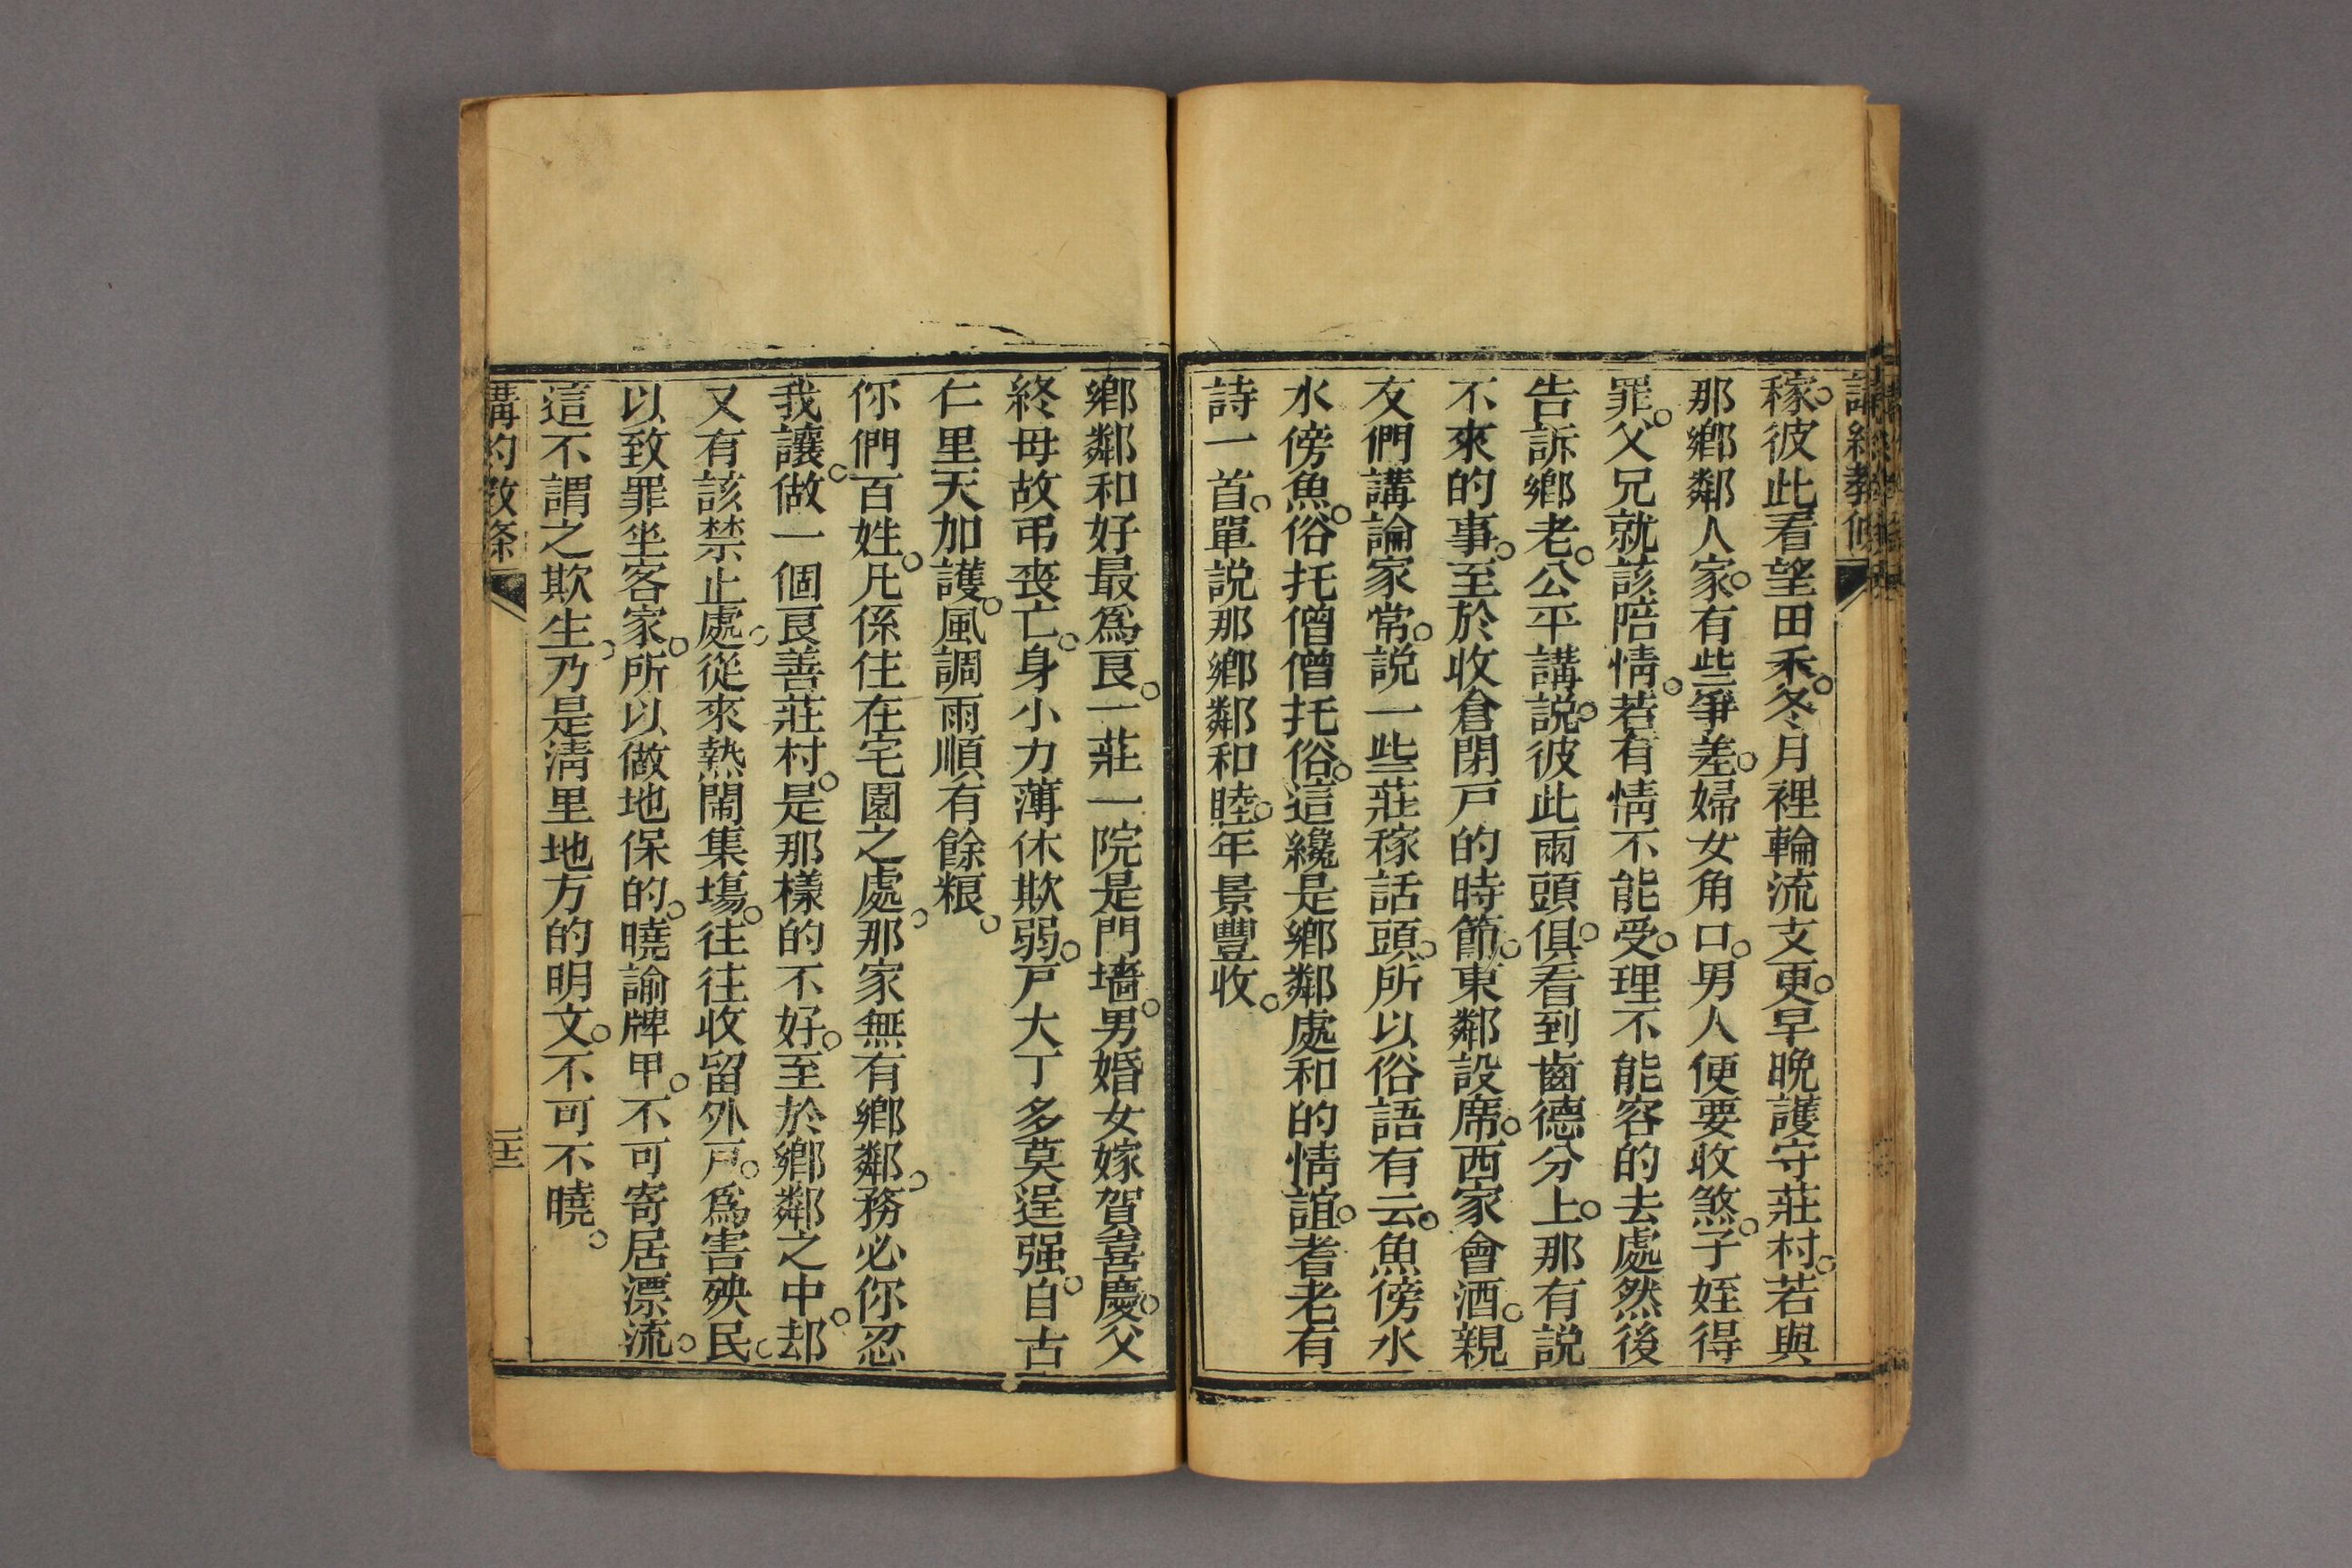 稼。彼此看望田禾。冬月裡輪流支更。早晚護守莊村。若與
那鄉鄰人家。有些爭差。婦女角口。男人便要收煞。子姪得
罪。父兄就該陪情。若有情不能受。理不能容的去處然後
告訴鄉老。公平講説。彼此兩頭俱。看到齒德分上。那有説
不來的事。至於收倉閉戸的時節。東鄰設席。西家會酒。親
友們講論家常。説一些莊稼話頭。所以俗語有云。魚傍水
水傍魚。俗托僧僧托俗。這纔是鄉鄰處和的情誼。耆老有
詩一首。單説那鄉鄰和睦。年景豐收。
鄉鄰和好最爲良。一莊一院是門墻。男婚女嫁賀喜慶。父
終母故弔喪亡。身小力薄休欺弱。戸大丁多莫逞强。自古
仁里天加護。風調雨順有餘粮。
你們百姓。凡係住在宅園之處。那家無有鄉鄰。務必你忍
我讓。做一個良善莊村。是那樣的不好。至於鄉鄰之中。却
又有該禁止處。從來熱鬧集塲。往往收留外戸。爲害殃民。
以致罪坐客家。所以做地保的。曉諭牌甲。不可寄居漂流。
這不謂之欺生。乃是清里地方的明文。不可不曉。
講約教條
二十三